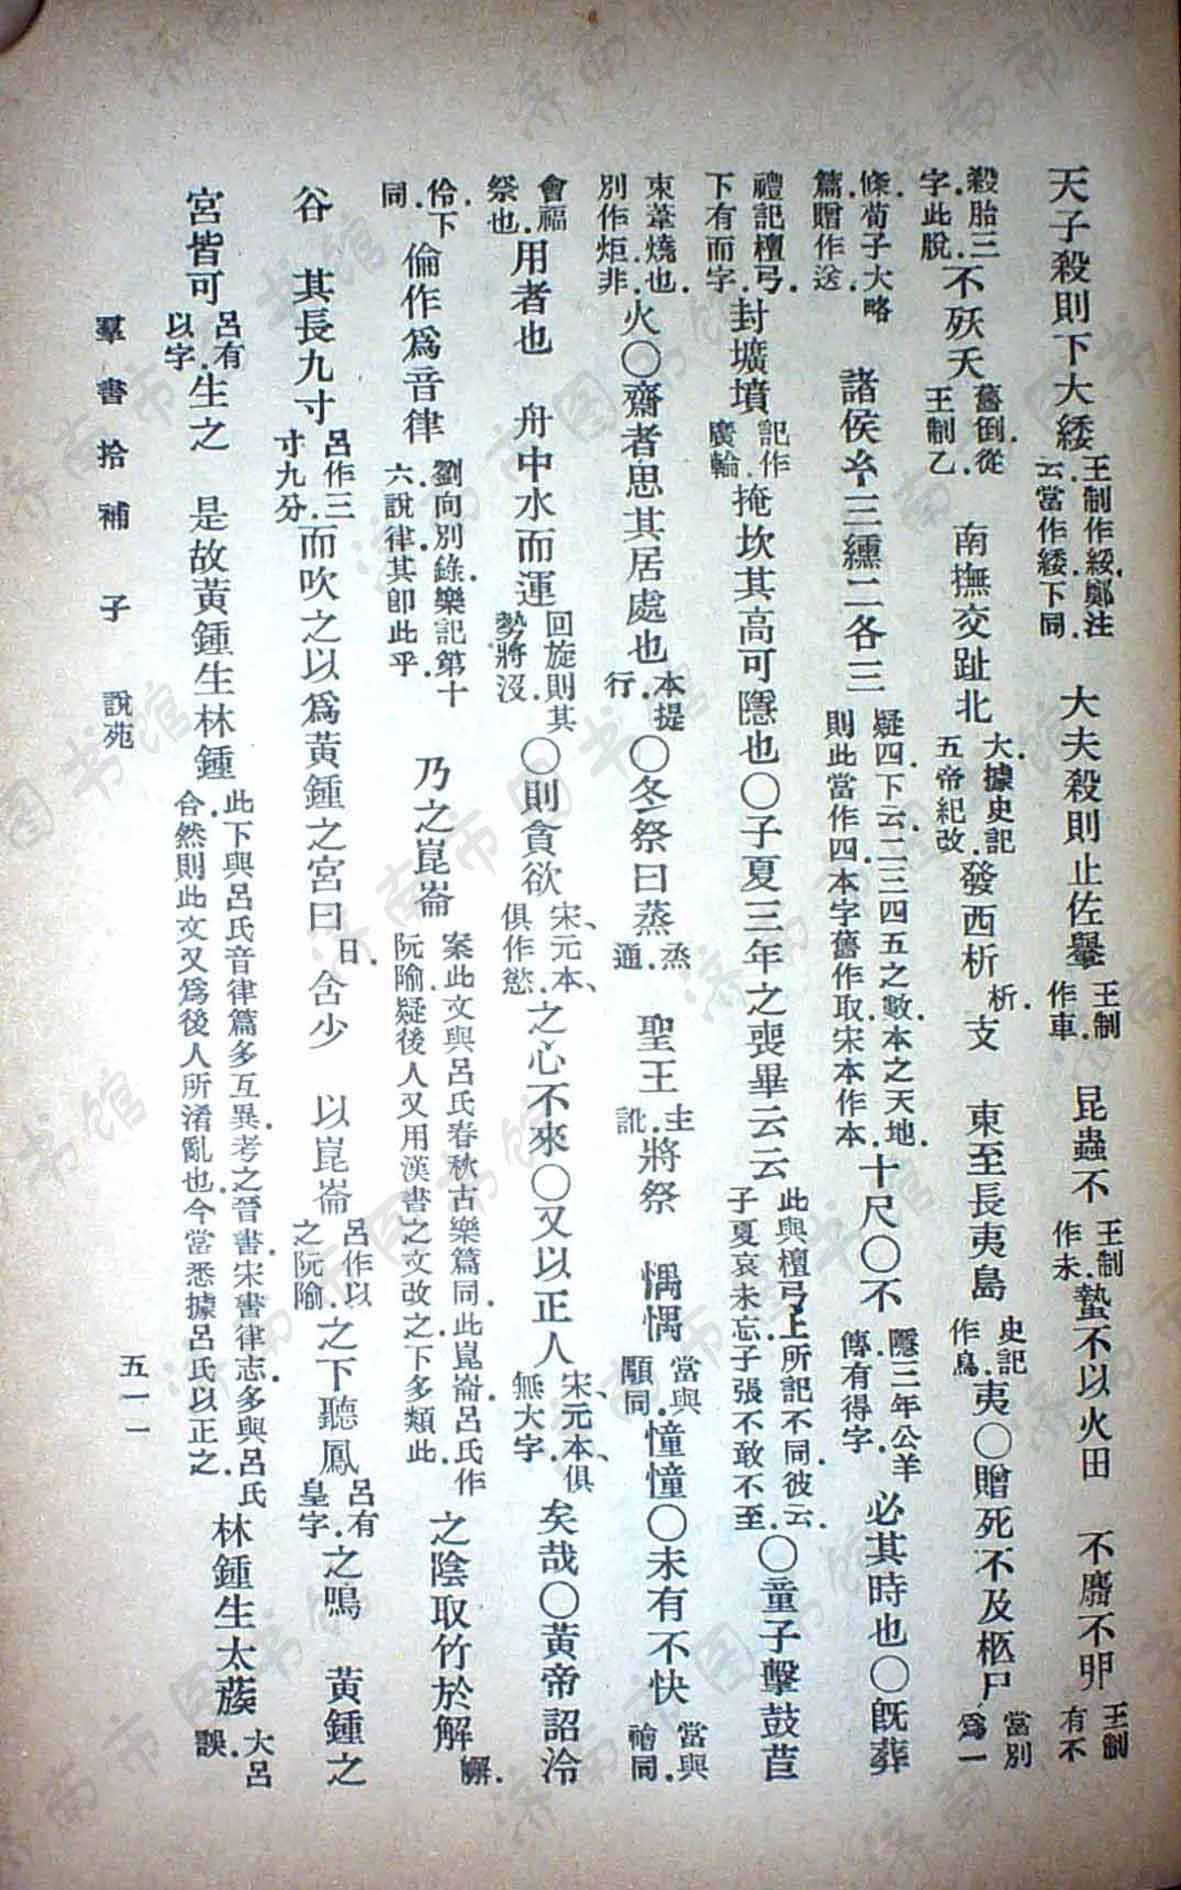 天子殺則下大緌王制作綏.鄭注云.當作緌.下同. 大夫殺則止佐轝王制作車. 昆蟲不王制作未.蟄不以火田 不麛不卵王制有不
殺胎三字.此脫.不殀夭舊倒.從王制乙. 南撫交趾北大.據史記五帝紀改.發西析析.支 東至長夷島史記作鳥.夷○贈死不及柩尸當別爲一
條.荀子大略篇.贈作送. 諸侯幺三纁二各三疑四.下云.二三四五之數.本之天地.則此當作四.本字舊作取.宋本作本.十尺○不隱三年公羊傳有得字. 必其時也○旣葬
禮記檀弓.下有而字.封壙墳記作廣輪.掩坎其高可隱也○子夏三年之喪畢云云此與檀弓上所記不同.彼云.子夏哀未忘.子張不敢不至.○童子擊鼓苣
束葦燒也.別作炬.非.火○齋者思其居處也本提行.○冬祭曰蒸烝通. 聖王主訛.將祭 愲愲當與顒同.憧憧○未有不快當與禬同.
會福祭也.用者也 舟中水而運回旋則其勢將沒.○則貪欲宋、元本、俱作慾.之心不來○又以正人宋、元本、俱無大字. 矣哉○黃帝詔泠
伶.下同. 倫作爲音律劉向別錄.樂記第十六說律.其卽此乎. 乃之崑崙案此文與呂氏春秋古樂篇同.此崑崙.呂氏作阮隃.疑後人又用漢書之文改之.下多類此.之陰取竹於解嶰.
谷 其長九寸呂作三寸九分.而吹之以爲黃鍾之宮曰日. 含少 以崑崙呂作以之阮隃.之下聽鳳呂有皇字.之鳴 黃鍾之
宮皆可呂有以字.生之 是故黃鍾生林鍾此下與呂氏音律篇多互異.考之晉書.宋書律志.多與呂氏合.然則此文又爲後人所淆亂也.今當悉據呂氏以正之. 林鍾生太蔟大呂誤.
羣書拾補 子 說苑 五一一